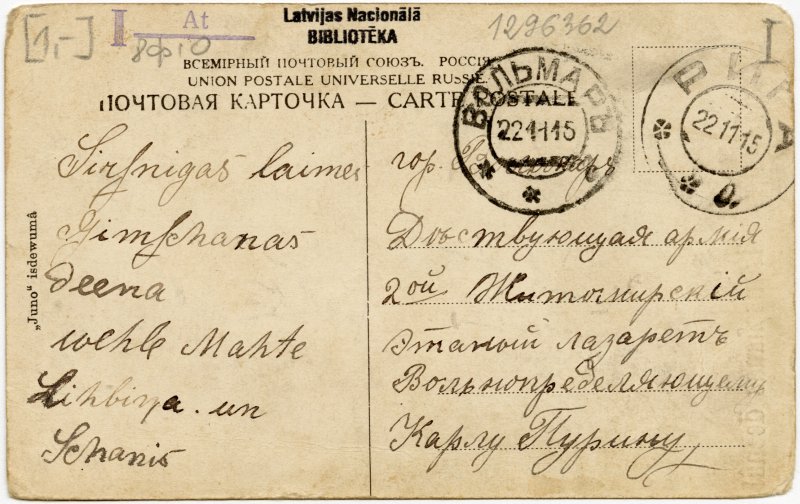 [1,-]
I At
Latvijas Nacionālā
BIBLIOTĒKA
1296362
I
ВСЕМІРНЫЙ ПОЧТОВЫЙ СОЮЗЪ. РОССІЯ.
UNION POSTALE UNIVERSELLE RUSSIE.
ПОЧТОВАЯ КАРТОЧКА — CARTE POSTALE
ВОЛЬМАРЪ
22 11 15
РИГА
22 11 15
Sirsnigas laimes
Dsimschanas
deena
wehle Mahte
Lihbiņa. un
Schanis
„Juno“ isdewumā
гор.
Дѣйствующая армія
2ой Житомирскій
Этапный лазаретъ
Вольнопредѣляющему
Карлу Пурину